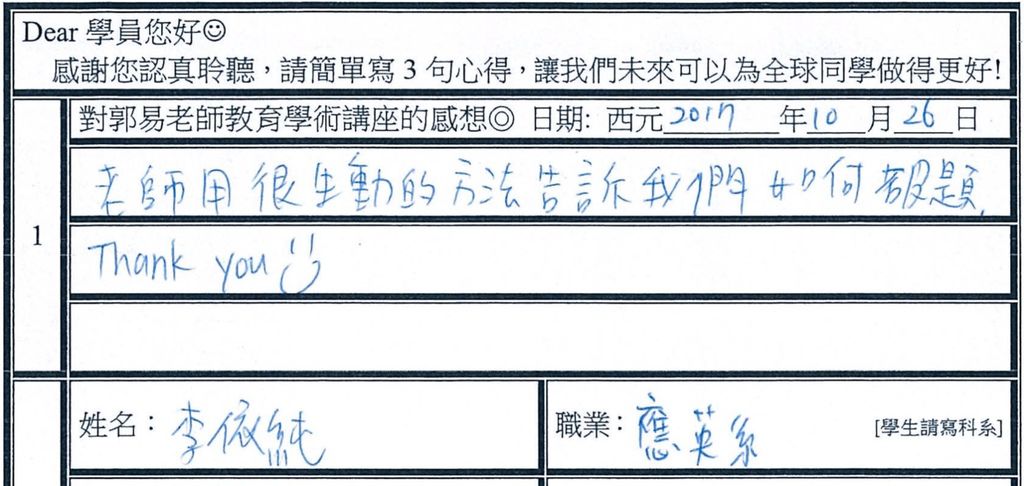 Dear 學員您好☺
感謝您認真聆聽，請簡單寫 3 句心得，讓我們未來可以為全球同學做得更好!
1
對郭易老師教育學術講座的感想◎ 日期: 西元2017年10月26日
老師用很生動的方法告訴我們如何解題.
Thank you
姓名：李依純
職業：應英系 [學生請寫科系]